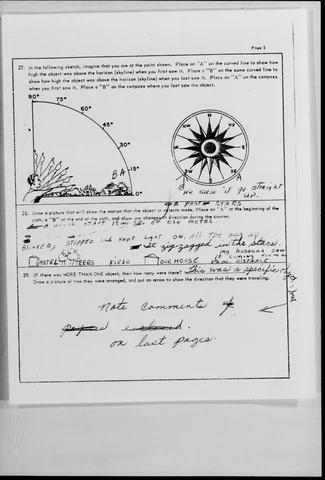 Page 3
27. In the following sketch, imagine that you are at the point shown. Place an "A" on the curved line to show how
high the object was above the horizon (skyline) when you first saw it. Place a "B" on the same curved line to
show how high the object was above the horizon (skyline) when you last saw it. Place an "A" on the compass
when you first saw it. Place a "B" on the compass where you last saw the object.
90°
75°
60°
45°
30°
15°
0°
B A
N
NE
E
SE
S
SW
W
NW
A
B
We saw it go straight
up.
B PAST STARS
28. Draw a picture that will show the motion that the object or objects made. Place an "A" at the beginning of the
path, a "B" at the end of the path, and show any changes in direction during the course.
A START
OF THE MOTEL
BLINKED, STOPPED and kept light on. All the way up
It zig zagged in the stars.
MY HUSBAND SAW
IT COMING FROM A
DISTANCE
MOTEL TREES FIELD OUR HOUSE
29. IF there was MORE THAN ONE object, then how many were there? This was a specific
Draw a picture of how they were arranged, and put an arrow to show the direction that they were traveling.
Note Comments
on last pages.